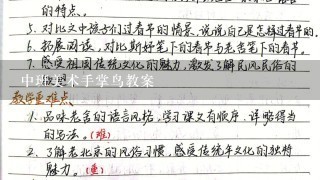 的特点。
5. 对比文中孩子们过春节的情景,说说自己是怎样过春节的.
6. 拓展阅读,对比斯妤笔下的春节与老舍笔下的春节。
7. 感受祖国传统文化的魅力,激发了解民风民俗的
欲望
中班美术手掌鸟教案
教学重难点、
1. 品味老舍的语言风格,学习课文有顺序、详略得当
的写法。(难)
2. 了解老北京的风俗习惯,感受传统年文化的独特
魅力。(重)